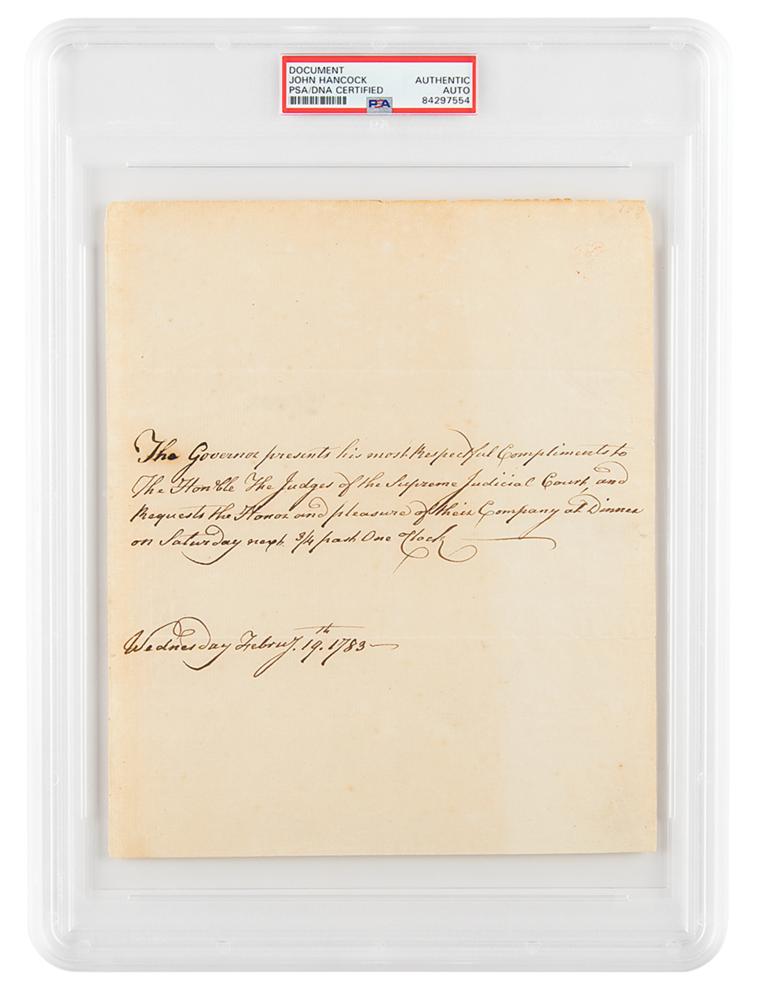 DOCUMENT
JOHN HANCOCK
PSA/DNA CERTIFIED
AUTHENTIC
AUTO
84297554
PSA
The Governor presents his most Respectful Compliments to
The Hon'ble The Judges of the Supreme Judicial Court, and
Requests the Honor and pleasure of their Company at Dinner
on Saturday next 3/4 past One Clock
Wednesday Februy. 19.th 1783